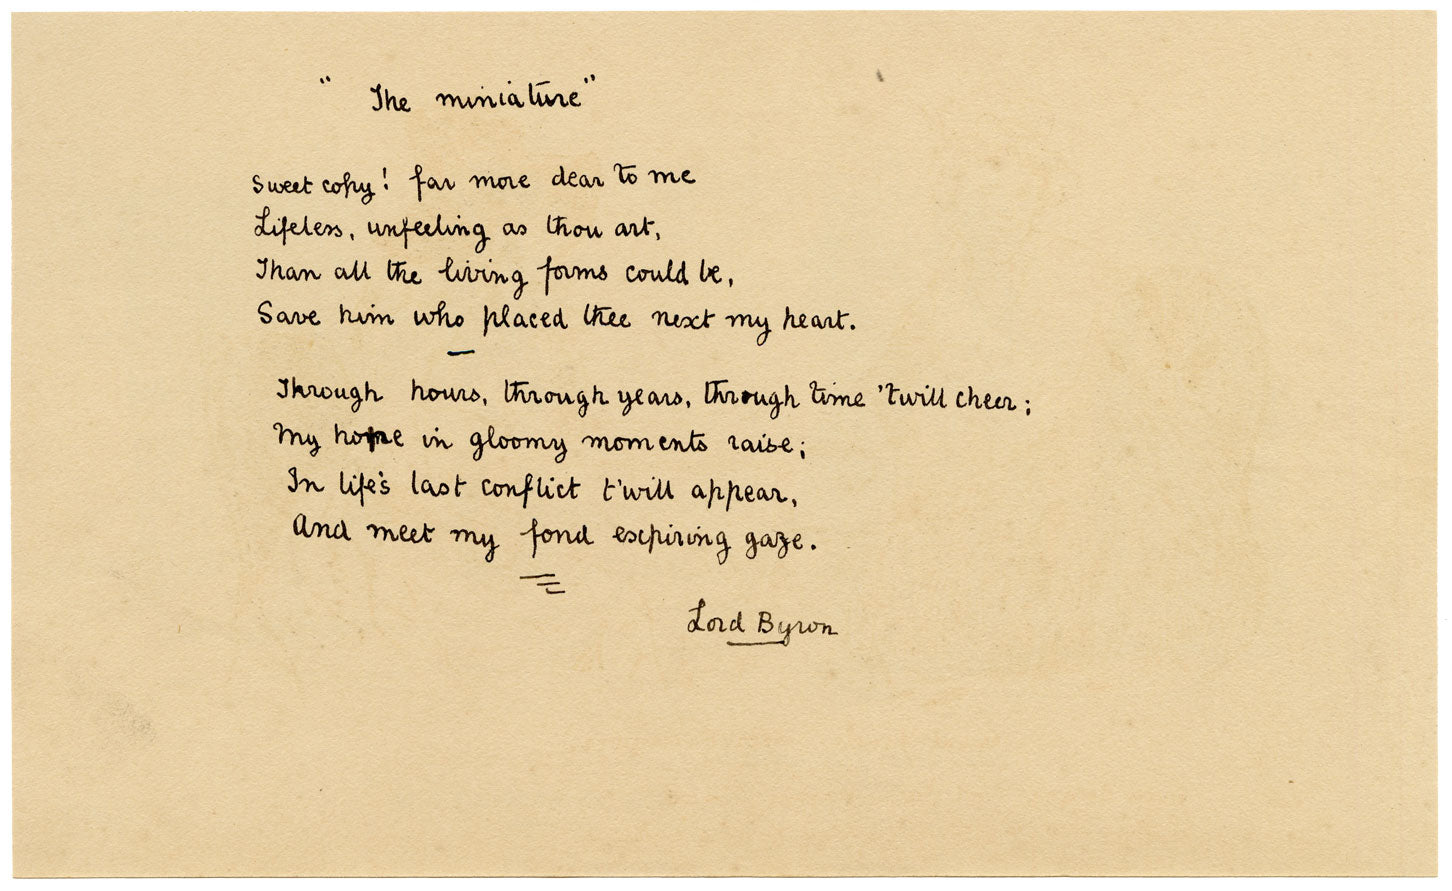 "The miniature"
Sweet copy! far more dear to me
Lifeless, unfeeling as thou art,
Than all the living forms could be,
Save him who placed thee next my heart.
Through hours, through years, through time 'twill cheer;
My hope in gloomy moments raise;
In life's last conflict t'will appear,
And meet my fond expiring gaze.
Lord Byron